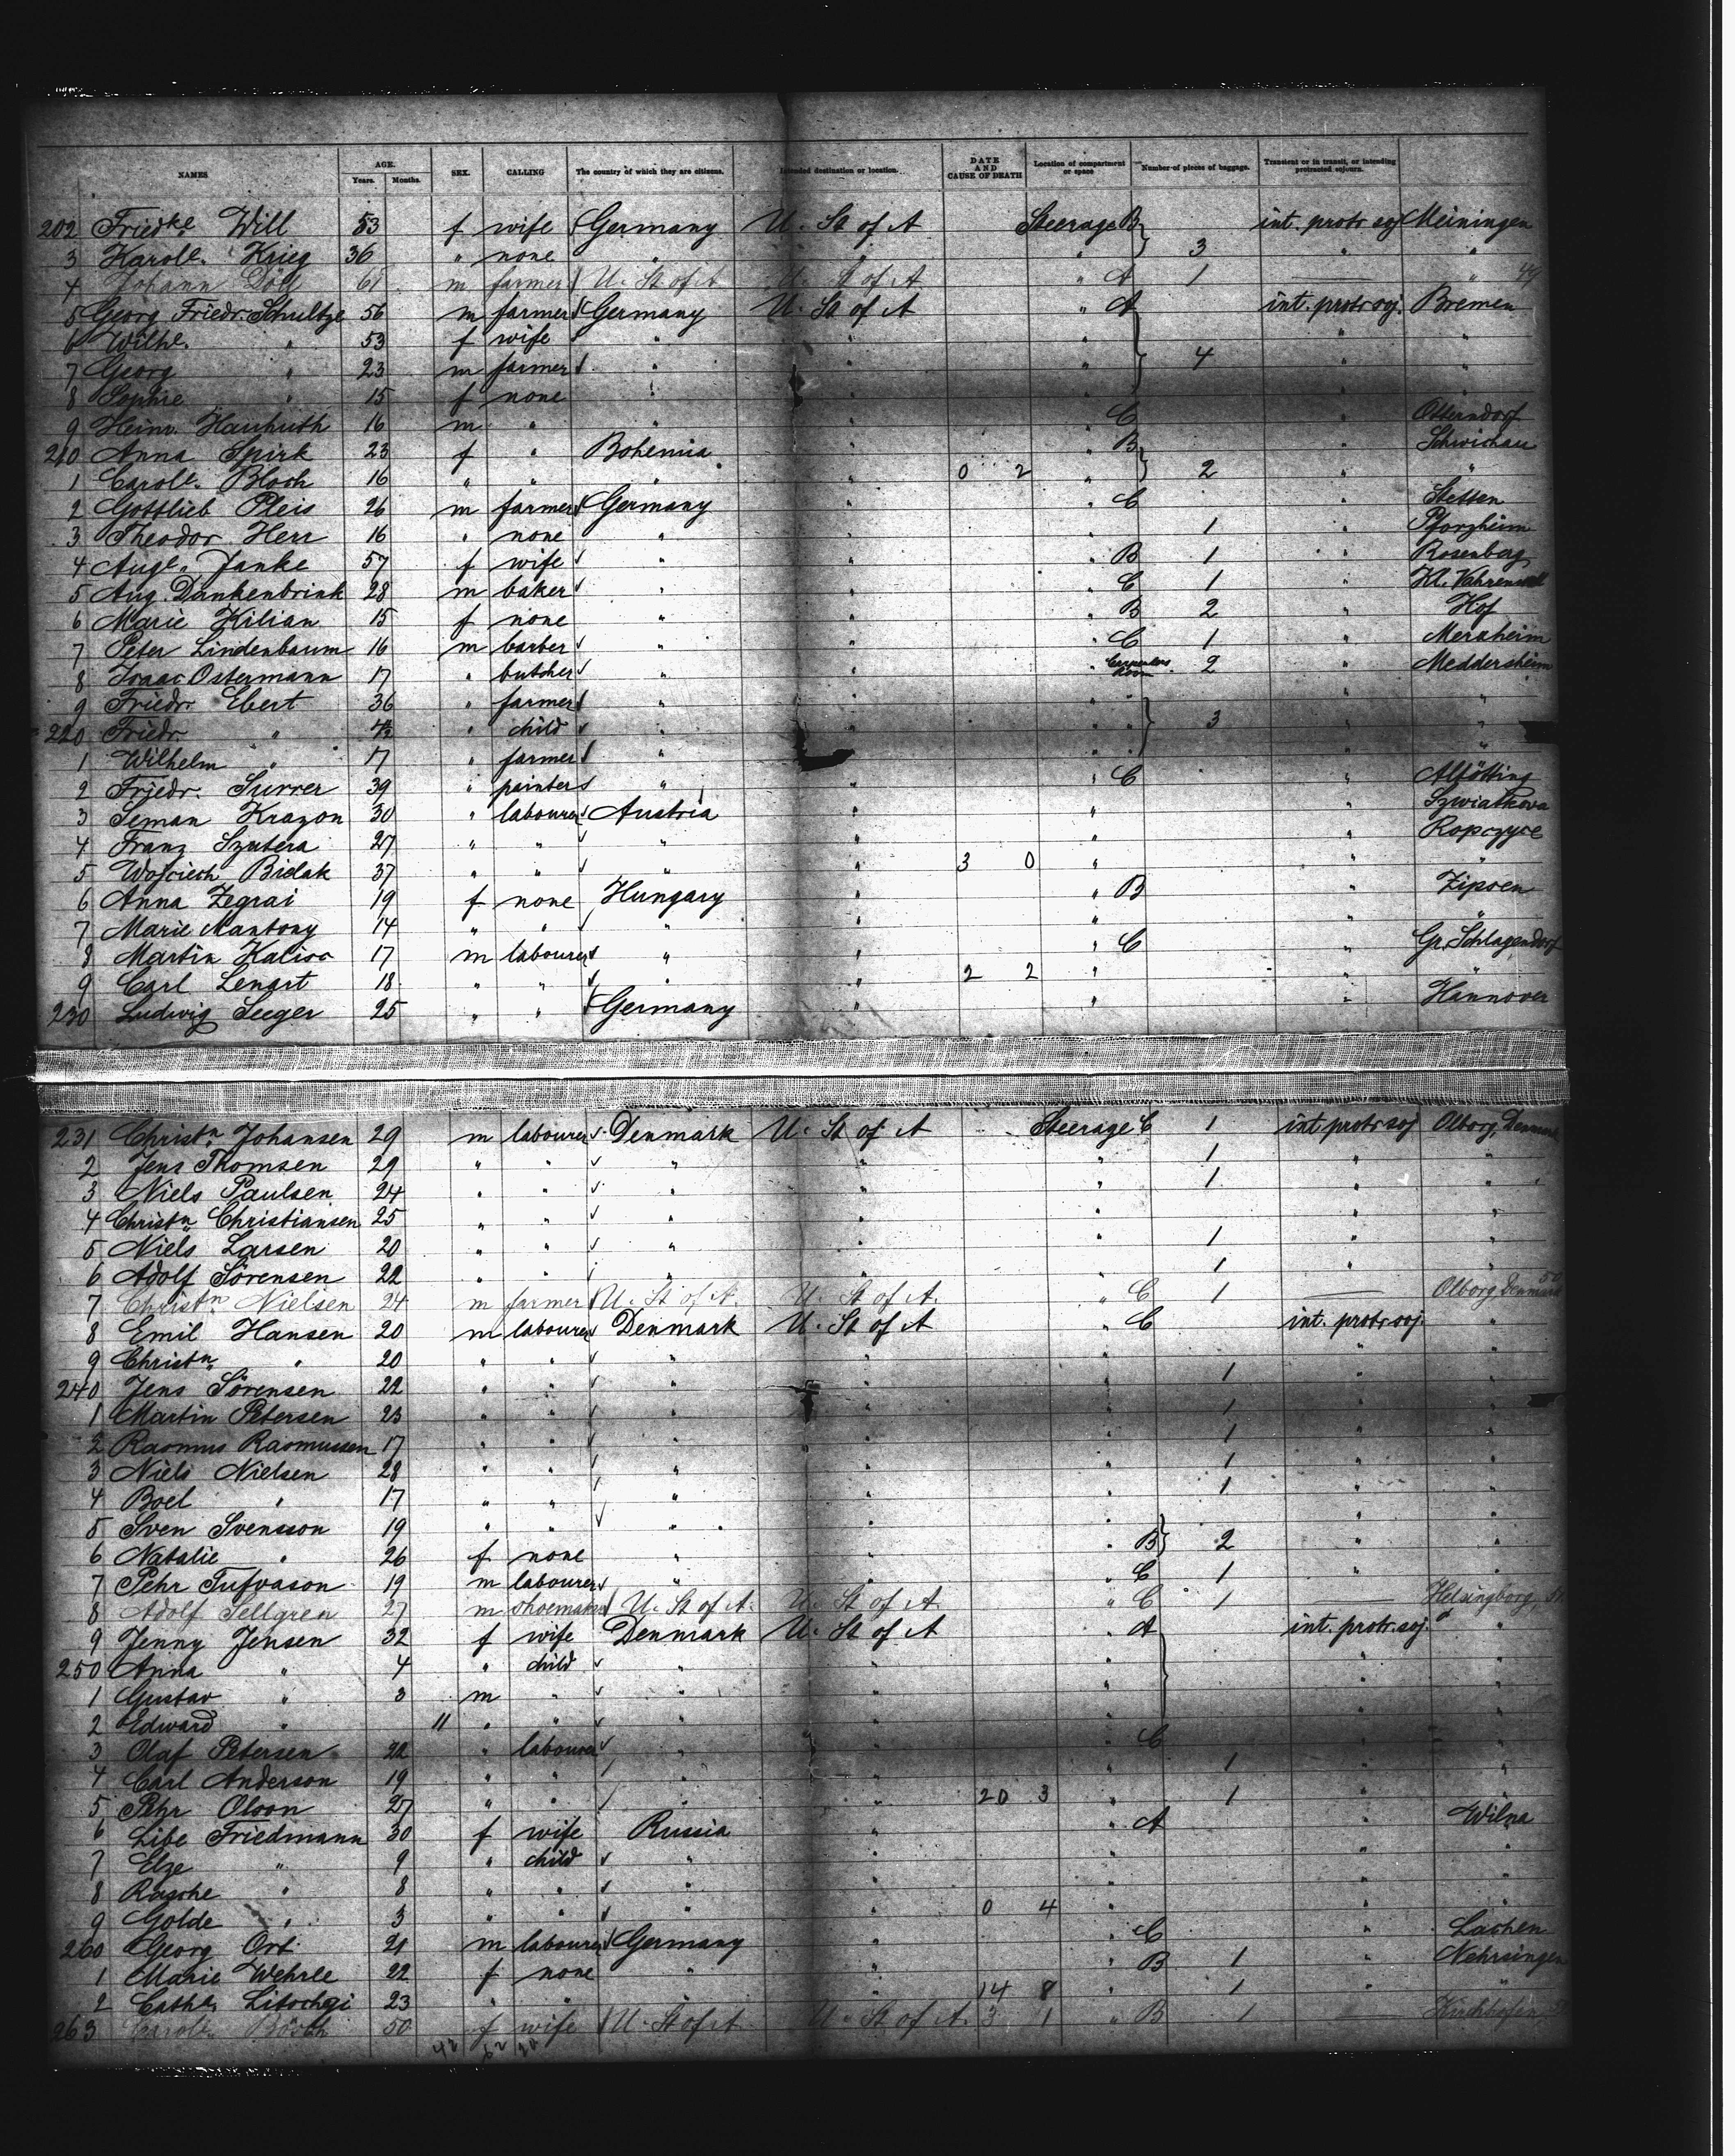 NAMES AGE. Years. Months. SEX. CALLING The country of which they are citizens. Intended destination or location. DATE AND CAUSE OF DEATH Location of compartment or space Number of pieces of baggage. Transient or in transit, or intending protracted sojourn.
202 Friedke Will 53 f wife Germany U. St of A Steerage B int. protr soj Meiningen
3 Karole. Krieg 36 " none " " " 3 " "
4 Johann Döll 61 m farmer U. St of A U. St of A " A 1 " 49
5 Georg Friedr. Schultze 56 m farmer Germany U. St of A " A int. protr soj. Bremen
6 Wilhe. " 53 f wife " " " " "
7 Georg " 23 m farmer " " " 4 " "
8 Sophie " 15 f none " " " "
9 Heinr. Hauhuth 16 m " " " C " Otterndorf
210 Anna Spirk 23 f " Bohemia " " B " Schwichau
1 Carole. Bloch 16 " " " " 0 2 2 " "
2 Gottlieb Pleis 26 m farmer Germany " " C " Stetten
3 Theodor Herr 16 " none " " 1 " Pforzheim
4 Auge. Janke 57 f wife " " " B 1 " Rosenberg
5 Aug. Dankenbrink 28 m baker " " " C 1 " Kl. 
6 Marie Kilian 15 f none " " " B 2 " Hof
7 Peter Lindenbaum 16 m barber " " " C 1 " Merxheim
8 Isaac Ostermann 17 " butcher " " " Carpenters Room 2 " Meddersheim
9 Friedr. Ebert 36 " farmer " " " " " "
220 Friedr. " " child " " " " 3 " "
1 Wilhelm " 17 " farmer " " " " " "
2 Friedr. Surrer 39 " painter " " " C " Altötting
3 Seman Krazon 30 " labourer Austria " " " Szwiatkova
4 Franz Szutera 27 " " " " " " Ropczyce
5 Wojciech Bielak 37 " " " " 3 0 " " "
6 Anna Zegrai 19 f none Hungary " " B " Zipsen
7 Marie Mantony 14 " " " " " " "
8 Martin Kalisc 17 m labourer " " " C " Gr. Schlagendorf
9 Carl Lenart 18 " " " " 2 2 " " "
230 Ludwig Seeger 25 " " Germany " " " Hannover
231 Christn. Johansen 29 m labourer Denmark U. St of A Steerage C 1 int protr soj Olborg, Denmark
2 Jens Thomsen 29 " " " " " 1 " "
3 Niels Paulsen 24 " " " " " 1 " "
4 Christn. Christiansen 25 " " " " " " "
5 Niels Larsen 20 " " " " " 1 " "
6 Adolf Sörensen 22 " " " " 1 " "
7 Christn. Nielsen 24 m farmer U. St of A. U. St of A. " C 1 Olborg Denmark 50
8 Emil Hansen 20 m labourer Denmark U. St of A " C int. protr soj. "
9 Christn. " 20 " " " " " " "
240 Jens Sörensen 22 " " " " " 1 " "
1 Martin Petersen 23 " " " " " 1 " "
2 Rasmus Rasmussen 17 " " " " " 1 " "
3 Niels Nielsen 28 " " " " " 1 " "
4 Boel " 17 " " " " " 1 " "
5 Sven Svensson 19 " " " " " " "
6 Natalie " 26 f none " " " B 2 " "
7 Pehr Tufvason 19 m labourer " " " C 1 " "
8 Adolf Sellgren 27 m shoemaker U. St of A. U. St of A. " C 1 Helsingborg, 51
9 Jenny Jensen 32 f wife Denmark U. St of A " A int. protr. soj. "
250 Anna " 4 " child " " " " "
1 Gustav " 3 m " " " " " "
2 Edward " 11 " " " " " " "
3 Olaf Petersen 22 " labourer " " C " "
4 Carl Anderson 19 " " " " 1 " "
5 Pehr Olson 27 " " " " 20 3 " 1 " "
6 Libe Friedmann 30 f wife Russia " " A Wilna
7 Elze " 9 " child " " " " "
8 Rasche " 8 " " " " " " "
9 Golde " 3 " " " " 0 4 " " "
260 Georg Ort 21 m labourer Germany " " C " Lachen
1 Marie Wehrle 22 f none " " " B 1 " Nehrsingen
2 Cathe. Litschgi 23 " " " 14 8 " 1 " "
263 Carole. Bösch 50 f wife U. St of A U. St of A. 3 1 " B 1 Kirchhofen,
42 62 20